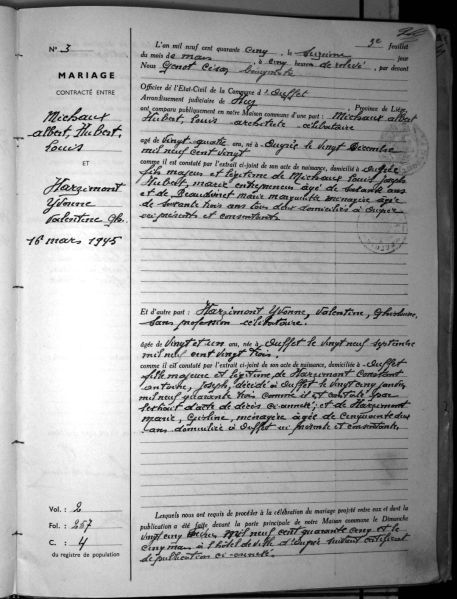 3e feuillet
N° 3
MARIAGE
CONTRACTÉ ENTRE
Michaux
Albert, Hubert,
Louis
ET
Harzimont
Yvonne
Valentine Gh.
16 mars 1945
Vol. : 2
Fol. : 257
C. : 4
du registre de population
L'an mil neuf cent quarante cinq, le seizième jour
du mois de mars, à cinq heures de relevé, par devant
Nous Genot César,
Officier de l'Etat-Civil de la Commune d'Ouffet
Arrondissement judiciaire de Huy, Province de Liége,
ont comparu publiquement en notre Maison commune d'une part : Michaux Albert
Hubert, Louis architecte célibataire
âgé de vingt quatre ans, né à le vingt Décembre
mil neuf cent vingt
comme il est constaté par l'extrait ci-joint de son acte de naissance, domicilié à
fils majeur et légitime de Michaux Louis Joseph
Hubert, entrepreneur âgé de ans
et de Marie ménagère âgée
de soixante trois ans tous deux domiciliés à
ici présents et consentants
Et d'autre part : Harzimont Yvonne, Valentine, Ghislaine,
sans profession célibataire.
âgée de vingt et un ans, née à Ouffet le vingt neuf septembre
mil neuf cent vingt trois.
comme il est constaté par l'extrait ci-joint de son acte de naissance, domicilié à Ouffet
fille majeure et légitime de Harzimont Constant
Antoine, Joseph, décédé à Ouffet le vingt cinq janvier
mil neuf quarante trois comme il est constaté par
extrait d'acte de décès ci-annexé; et de Harzimont
Marie, ménagère âgée de cinquante deux
ans domiciliée à Ouffet ici présente et consentante.
Lesquels nous ont requis de procéder à la célébration du mariage projeté entre eux et dont la
publication a été faite devant la porte principale de notre Maison commune le Dimanche
vingt cinq mil neuf cent quarante cinq et le
cinq mars à l'hôtel de ville d' suivant certificat
de publication ci-annexé.